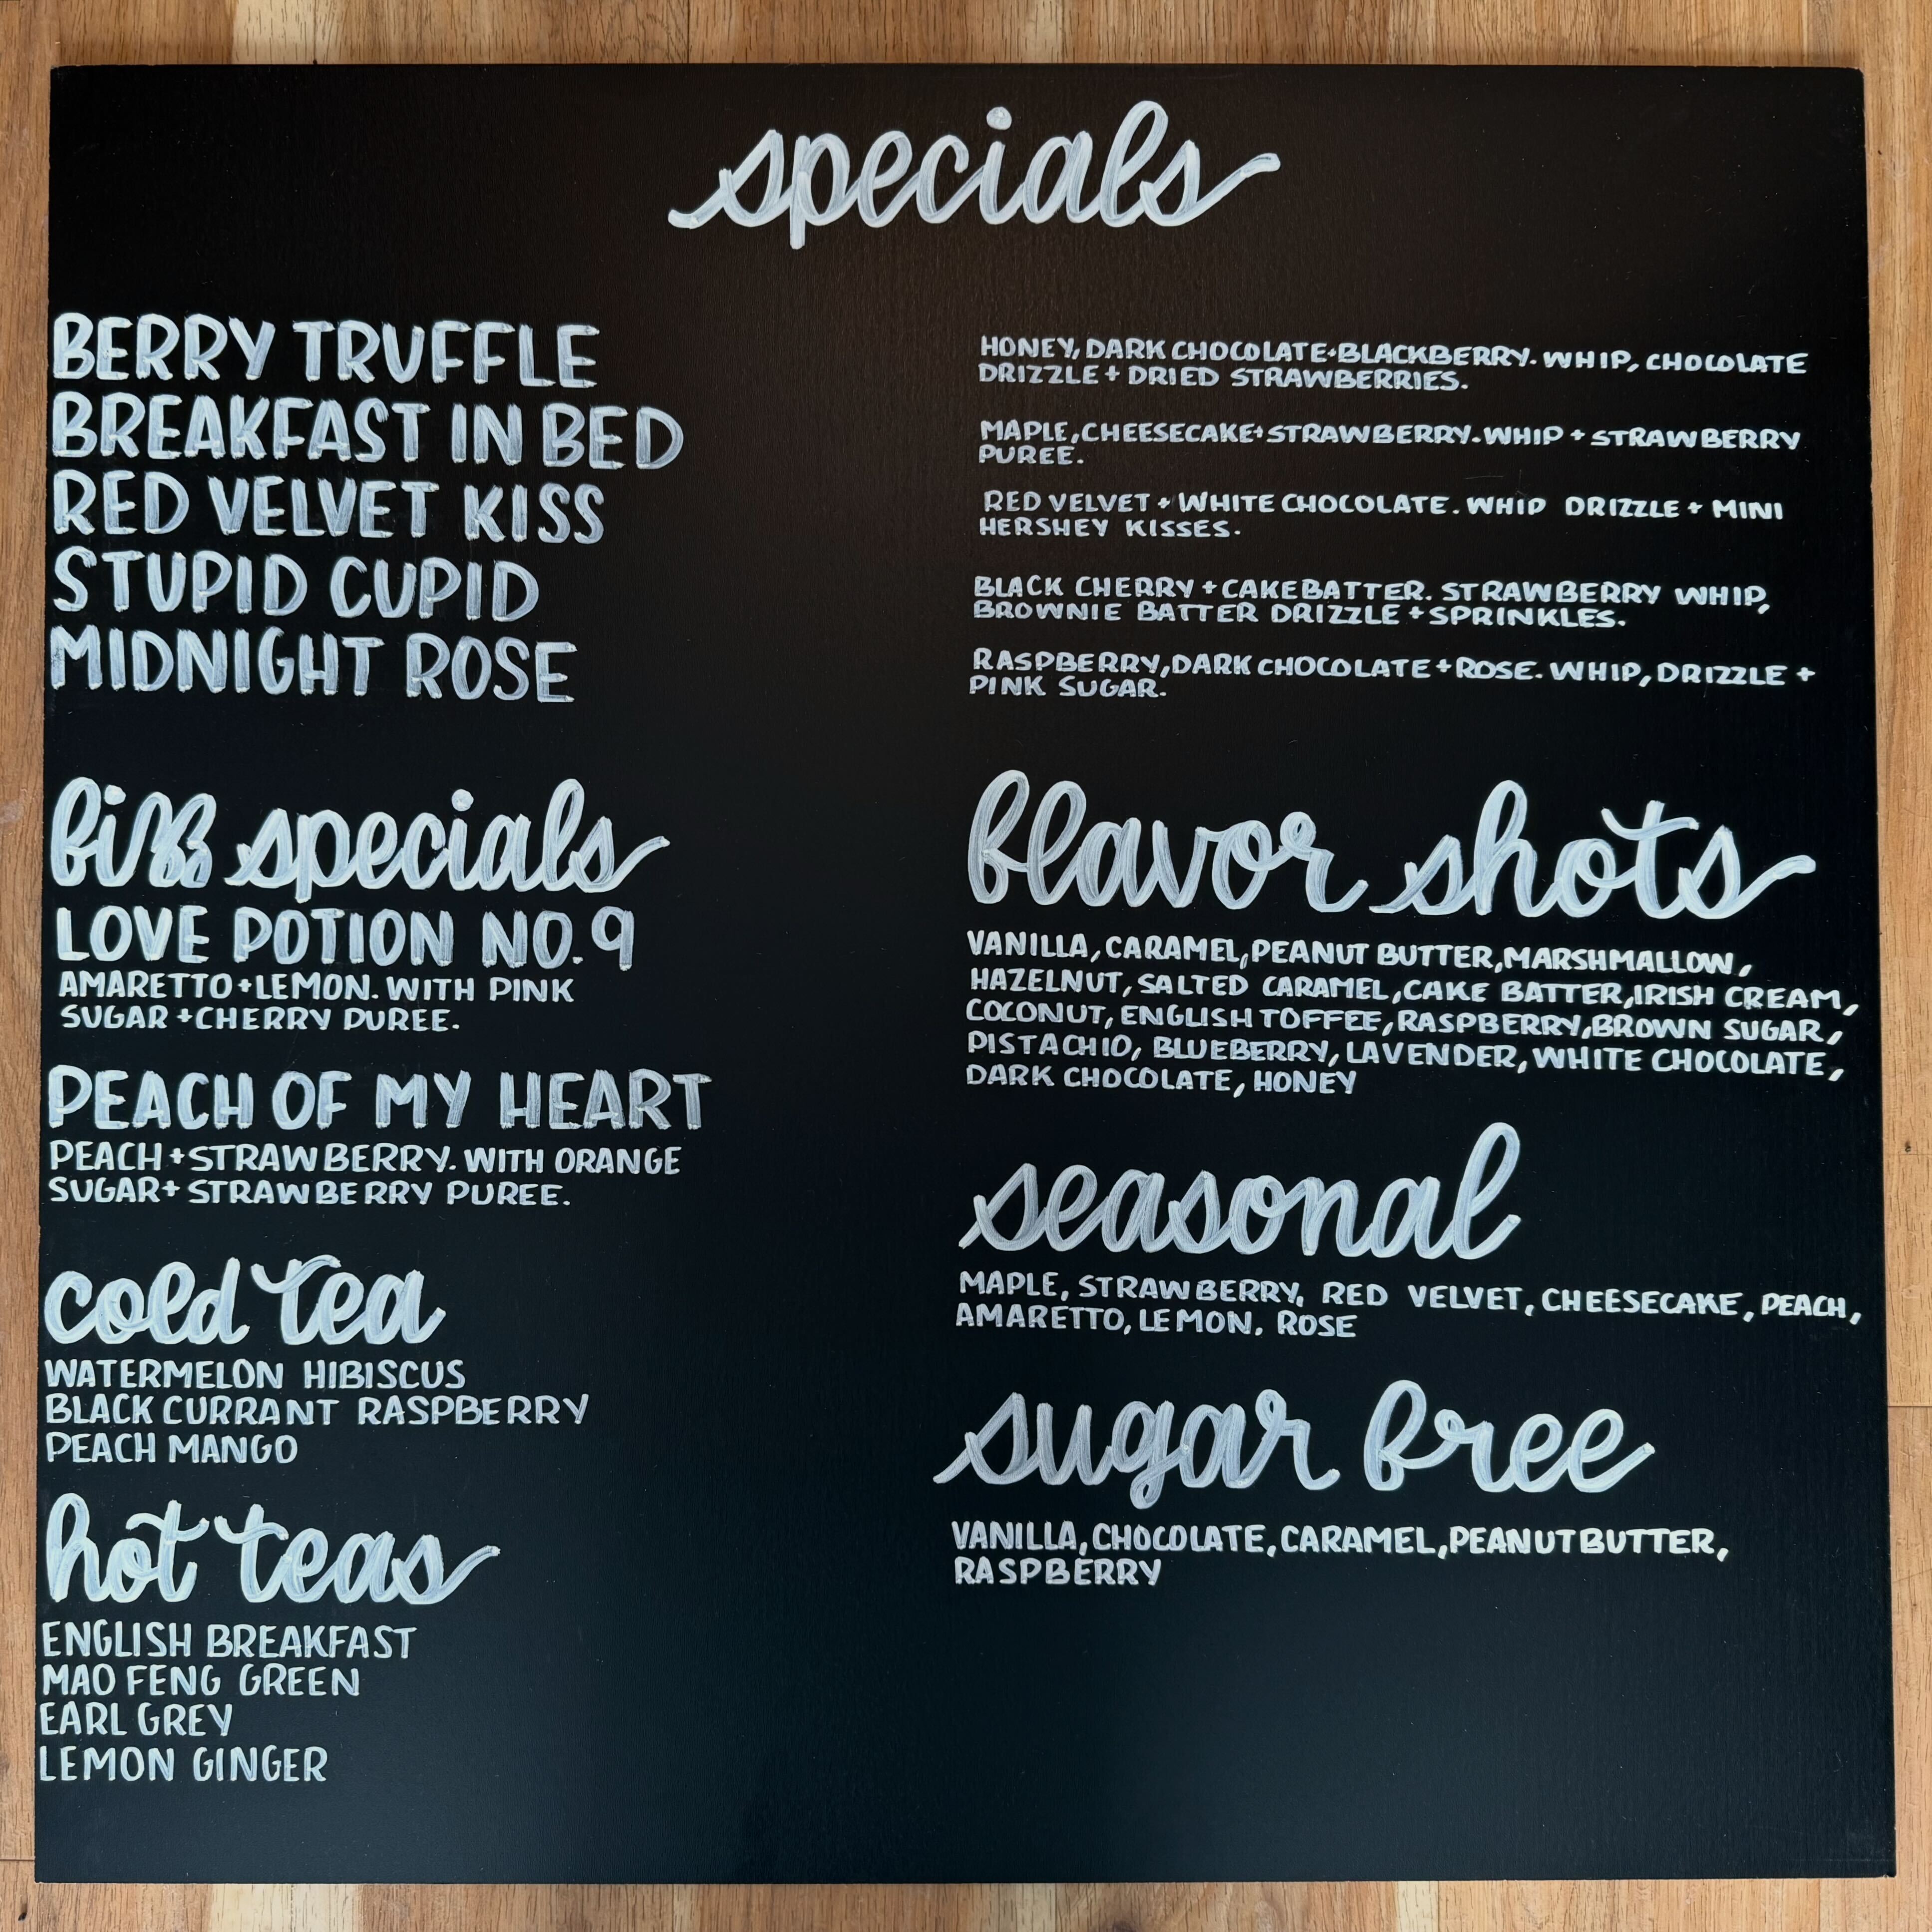 specials
BERRY TRUFFLE
HONEY, DARK CHOCOLATE+BLACKBERRY. WHIP, CHOCOLATE
DRIZZLE + DRIED STRAWBERRIES.
BREAKFAST IN BED
MAPLE, CHEESECAKE+STRAWBERRY. WHIP + STRAWBERRY
PUREE.
RED VELVET KISS
RED VELVET + WHITE CHOCOLATE. WHIP DRIZZLE + MINI
HERSHEY KISSES.
STUPID CUPID
BLACK CHERRY + CAKEBATTER. STRAWBERRY WHIP,
BROWNIE BATTER DRIZZLE + SPRINKLES.
MIDNIGHT ROSE
RASPBERRY, DARK CHOCOLATE + ROSE. WHIP, DRIZZLE +
PINK SUGAR.
fizz specials
LOVE POTION NO. 9
AMARETTO + LEMON. WITH PINK
SUGAR + CHERRY PUREE.
PEACH OF MY HEART
PEACH + STRAWBERRY. WITH ORANGE
SUGAR + STRAWBERRY PUREE.
cold tea
WATERMELON HIBISCUS
BLACK CURRANT RASPBERRY
PEACH MANGO
hot teas
ENGLISH BREAKFAST
MAO FENG GREEN
EARL GREY
LEMON GINGER
flavor shots
VANILLA, CARAMEL, PEANUT BUTTER, MARSHMALLOW,
HAZELNUT, SALTED CARAMEL, CAKE BATTER, IRISH CREAM,
COCONUT, ENGLISH TOFFEE, RASPBERRY, BROWN SUGAR,
PISTACHIO, BLUEBERRY, LAVENDER, WHITE CHOCOLATE,
DARK CHOCOLATE, HONEY
seasonal
MAPLE, STRAWBERRY, RED VELVET, CHEESECAKE, PEACH,
AMARETTO, LEMON, ROSE
sugar free
VANILLA, CHOCOLATE, CARAMEL, PEANUT BUTTER,
RASPBERRY